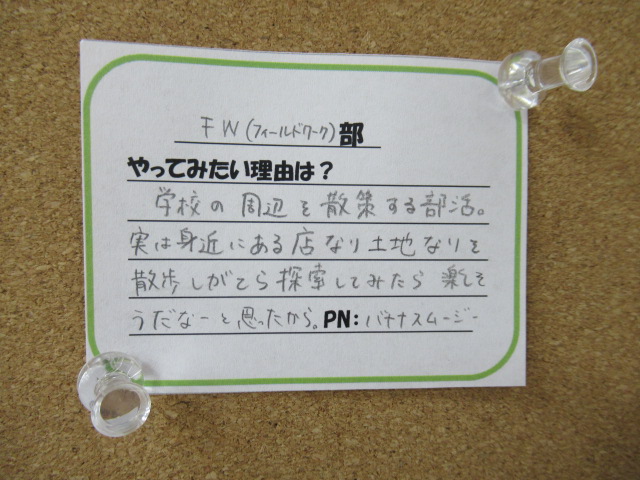 FW(フィールドワーク)部
やってみたい理由は?
学校の周辺を散策する部活。
実は身近にある店なり土地なりを
散歩しがてら探索してみたら楽しそ
うだなーと思ったから。PN:バナナスムージー